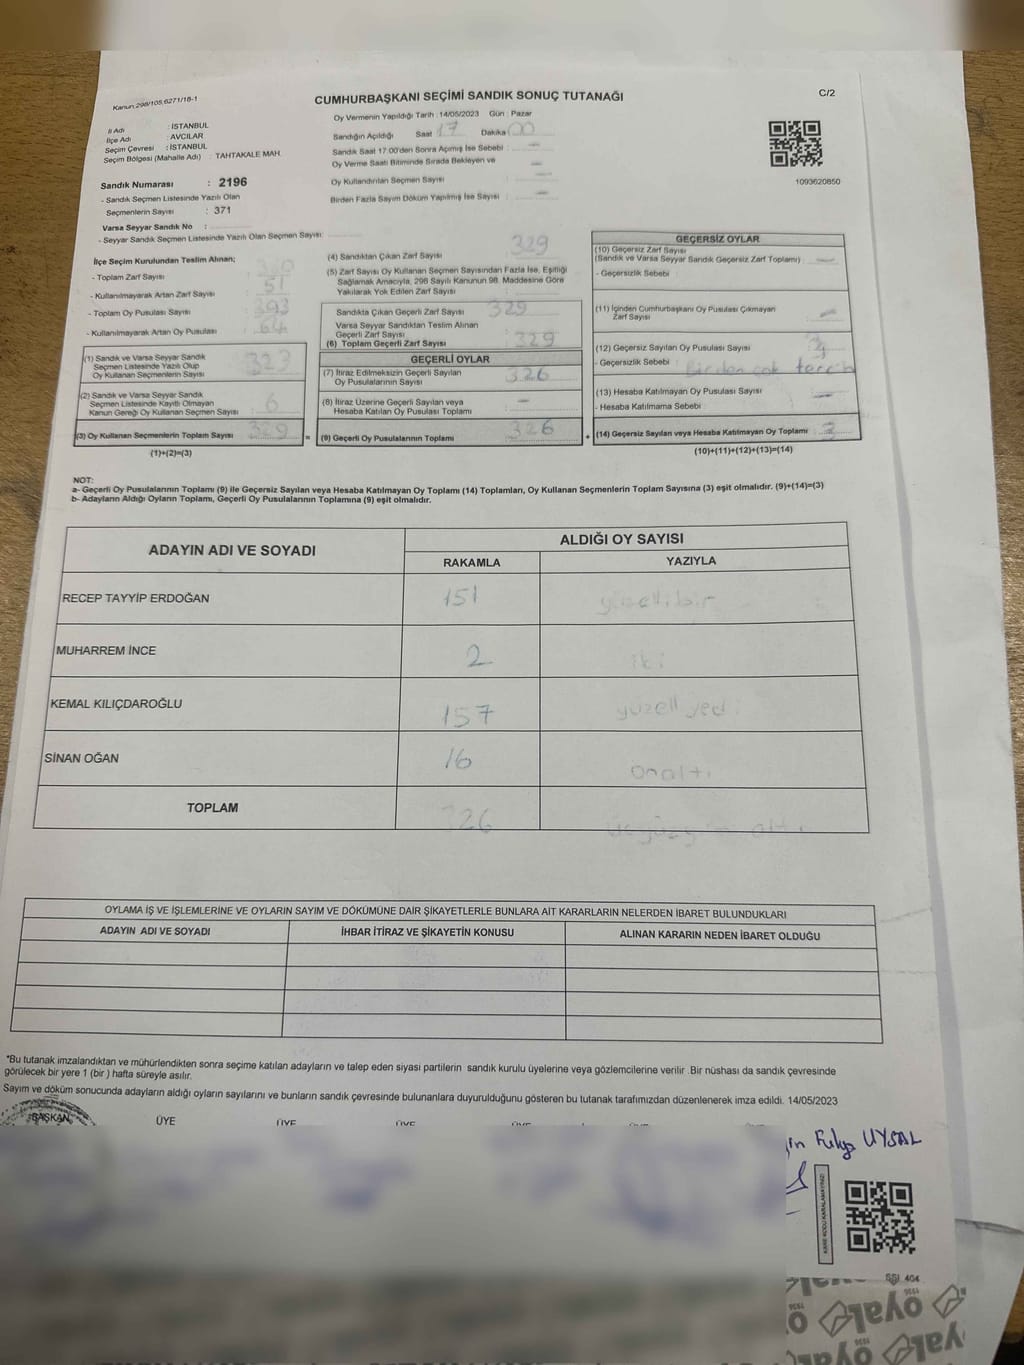 Kanun 298/105,6271/18-1
CUMHURBAŞKANI SEÇİMİ SANDIK SONUÇ TUTANAĞI
C/2
İl Adı : İSTANBUL
İlçe Adı : AVCILAR
Seçim Çevresi : İSTANBUL
Seçim Bölgesi (Mahalle Adı) : TAHTAKALE MAH.
Oy Vermenin Yapıldığı Tarih : 14/05/2023 Gün : Pazar
Sandığın Açıldığı Saat 17 Dakika 00
Sandık Saat 17:00'den Sonra Açımış İse Sebebi : —
Oy Verme Saati Bitiminde Sırada Bekleyen ve —
Oy Kullandırılan Seçmen Sayısı : —
Birden Fazla Sayım Döküm Yapılmış İse Sayısı : —
1093620850
Sandık Numarası : 2196
- Sandık Seçmen Listesinde Yazılı Olan
Seçmenlerin Sayısı : 371
Varsa Seyyar Sandık No :
- Seyyar Sandık Seçmen Listesinde Yazılı Olan Seçmen Sayısı:
İlçe Seçim Kurulundan Teslim Alınan;
- Toplam Zarf Sayısı :
- Kullanılmayarak Artan Zarf Sayısı : 51
- Toplam Oy Pusulası Sayısı : 393
- Kullanılmayarak Artan Oy Pusulası : 64
(1) Sandık ve Varsa Seyyar Sandık
Seçmen Listesinde Yazılı Olup
Oy Kullanan Seçmenlerin Sayısı : 323
(2) Sandık ve Varsa Seyyar Sandık
Seçmen Listesinde Kayıtlı Olmayan
Kanun Gereği Oy Kullanan Seçmen Sayısı : 6
(3) Oy Kullanan Seçmenlerin Toplam Sayısı : 329
(1)+(2)=(3)
(4) Sandıktan Çıkan Zarf Sayısı : 329
(5) Zarf Sayısı Oy Kullanan Seçmen Sayısından Fazla İse, Eşitliği
Sağlamak Amacıyla, 298 Sayılı Kanunun 98. Maddesine Göre
Yakılarak Yok Edilen Zarf Sayısı :
Sandıkta Çıkan Geçerli Zarf Sayısı : 329
Varsa Seyyar Sandıktan Teslim Alınan
Geçerli Zarf Sayısı :
(6) Toplam Geçerli Zarf Sayısı : 329
GEÇERLİ OYLAR
(7) İtiraz Edilmeksizin Geçerli Sayılan
Oy Pusulalarının Sayısı : 326
(8) İtiraz Üzerine Geçerli Sayılan veya
Hesaba Katılan Oy Pusulası Toplamı : —
= (9) Geçerli Oy Pusulalarının Toplamı : 326
GEÇERSİZ OYLAR
(10) Geçersiz Zarf Sayısı
(Sandık ve Varsa Seyyar Sandık Geçersiz Zarf Toplamı) : —
- Geçersizlik Sebebi :
(11) İçinden Cumhurbaşkanı Oy Pusulası Çıkmayan
Zarf Sayısı : —
(12) Geçersiz Sayılan Oy Pusulası Sayısı : 3
- Geçersizlik Sebebi : Birden çok tercih
(13) Hesaba Katılmayan Oy Pusulası Sayısı : —
- Hesaba Katılmama Sebebi :
+ (14) Geçersiz Sayılan veya Hesaba Katılmayan Oy Toplamı : 3
(10)+(11)+(12)+(13)=(14)
NOT:
a- Geçerli Oy Pusulalarının Toplamı (9) ile Geçersiz Sayılan veya Hesaba Katılmayan Oy Toplamı (14) Toplamları, Oy Kullanan Seçmenlerin Toplam Sayısına (3) eşit olmalıdır. (9)+(14)=(3)
b- Adayların Aldığı Oyların Toplamı, Geçerli Oy Pusulalarının Toplamına (9) eşit olmalıdır.
ADAYIN ADI VE SOYADI
ALDIĞI OY SAYISI
RAKAMLA YAZIYLA
RECEP TAYYİP ERDOĞAN 151 yüzellibir
MUHARREM İNCE 2 iki
KEMAL KILIÇDAROĞLU 157 yüzelliyedi
SİNAN OĞAN 16 onaltı
TOPLAM 326
OYLAMA İŞ VE İŞLEMLERİNE VE OYLARIN SAYIM VE DÖKÜMÜNE DAİR ŞİKAYETLERLE BUNLARA AİT KARARLARIN NELERDEN İBARET BULUNDUKLARI
ADAYIN ADI VE SOYADI İHBAR İTİRAZ VE ŞİKAYETİN KONUSU ALINAN KARARIN NEDEN İBARET OLDUĞU
*Bu tutanak imzalandıktan ve mühürlendikten sonra seçime katılan adayların ve talep eden siyasi partilerin sandık kurulu üyelerine veya gözlemcilerine verilir .Bir nüshası da sandık çevresinde
görülecek bir yere 1 (bir ) hafta süreyle asılır.
Sayım ve döküm sonucunda adayların aldığı oyların sayılarını ve bunların sandık çevresinde bulunanlara duyurulduğunu gösteren bu tutanak tarafımızdan düzenlenerek imza edildi. 14/05/2023
BAŞKAN ÜYE ÜYE ÜYE ÜYE ÜYE ÜYE
UYSAL
KARE KODU KARALAMAYINIZ!